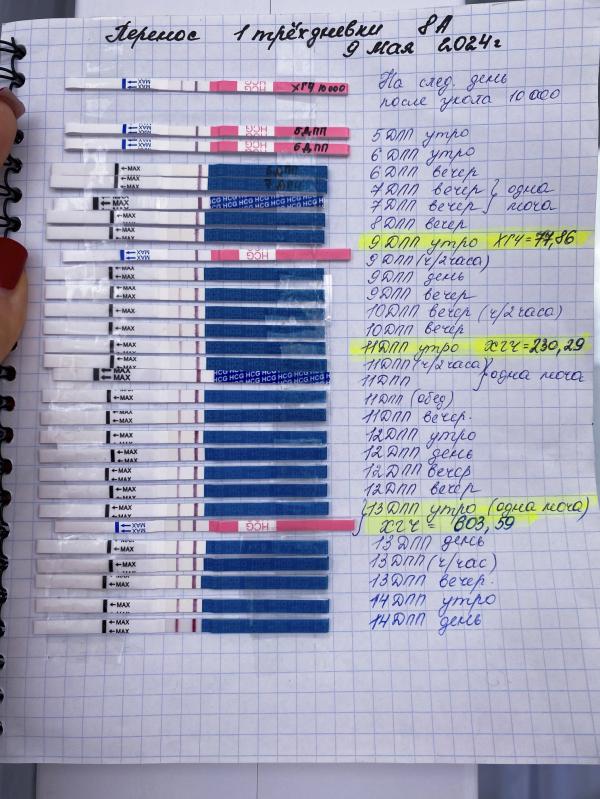 Перенос 1 трёхдневки 8А
9 Мая 2024г
ХГЧ 10000
На след. день
после укола 10000
5 ДПП
6 ДПП
5 ДПП утро
6 ДПП утро
6 ДПП вечер
7 ДПП вечер } одна
7 ДПП вечер } моча
8 ДПП вечер
9 ДПП утро ХГЧ = 77,86
9 ДПП (ч/2 часа)
9 ДПП день
9 ДПП вечер
10 ДПП вечер (ч/2 часа)
10 ДПП вечер
11 ДПП утро ХГЧ = 230,29
11 ДПП (ч/2 часа) }
11 ДПП } одна моча
11 ДПП (обед)
11 ДПП вечер.
12 ДПП утро
12 ДПП день
12 ДПП вечер
12 ДПП вечер
13 ДПП утро (одна моча)
ХГЧ = 803,59
13 ДПП день
13 ДПП (ч/час)
13 ДПП вечер.
14 ДПП утро
14 ДПП день